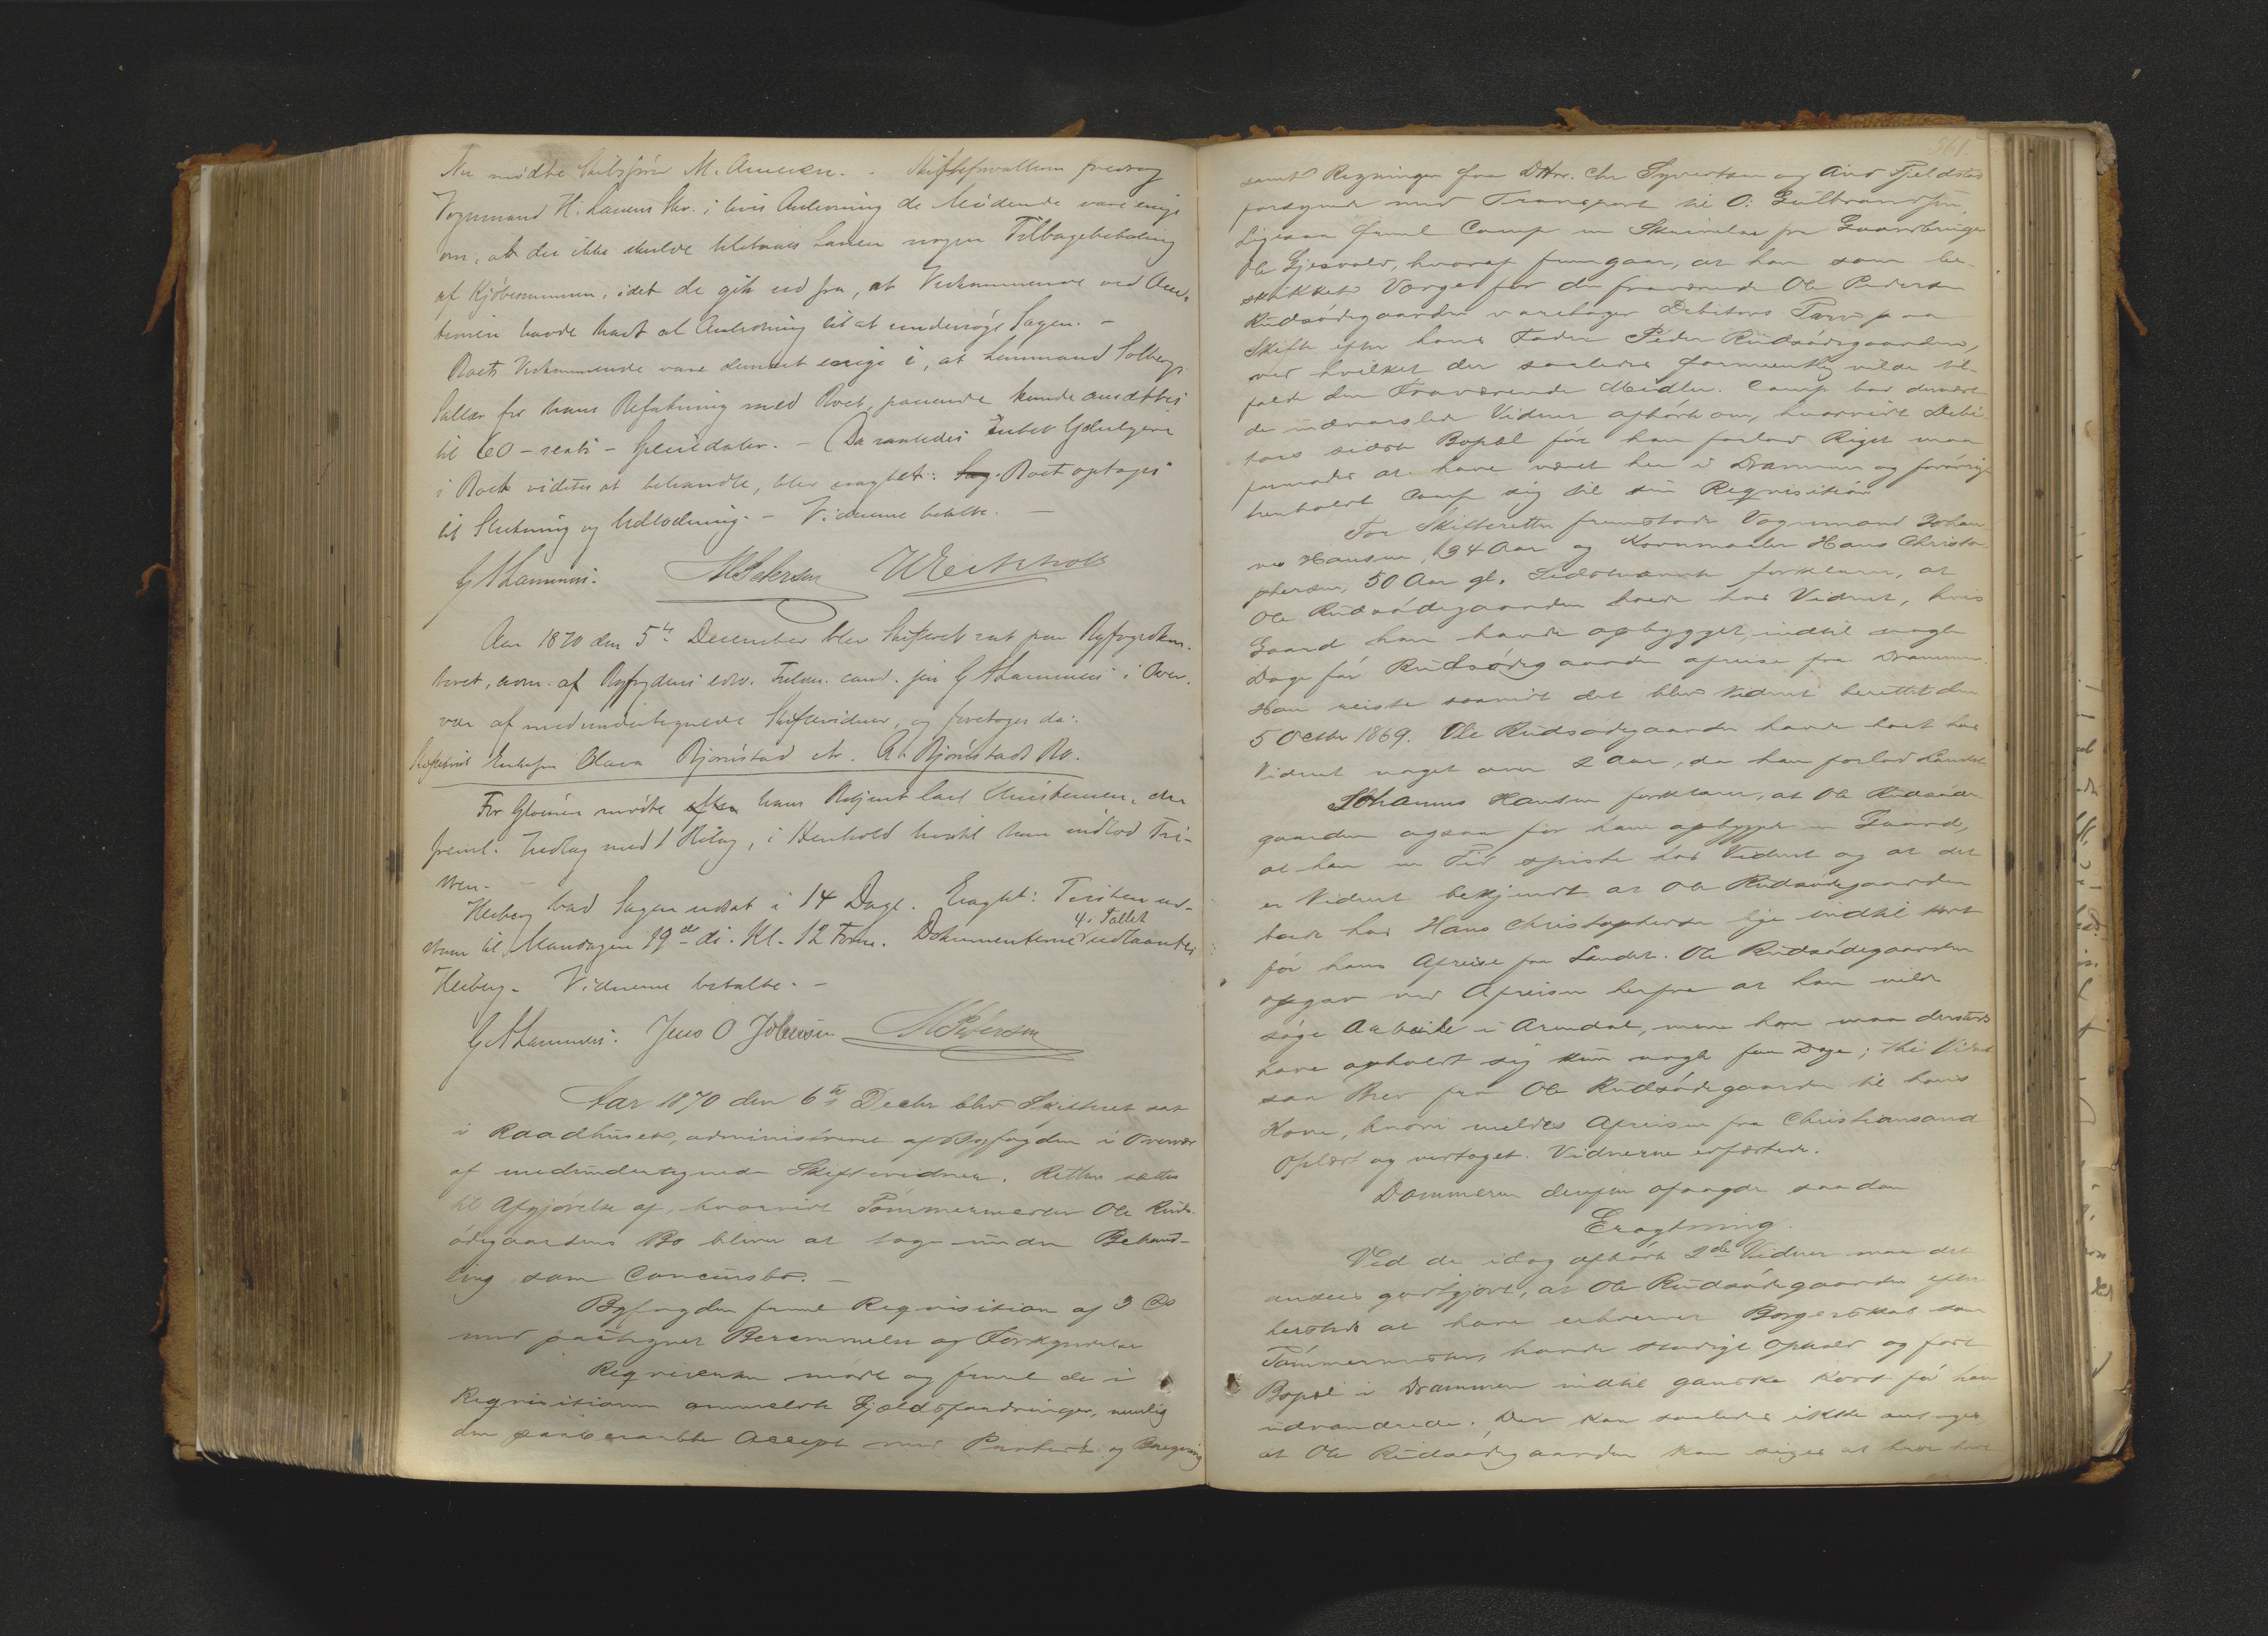 Nu mødte Skibsfører M. Amesen. - Skifteforvalteren foredrog
Vognmand H. Larsens Skr. i hvis Anledning de Mødende vare enige
om, at der ikke skulde tilstaaes Larsen nogen Tilbagebetaling
af Kjøbesummen, idet de gik ud fra, at Vedkommende ved Auc-
tionen havde havt al Anledning til at undersøge Sagen. -
Boets Vedkommende vare dernæst enige i, at Lensmand Solbergs
Sallær for hans Befatning med Boet passende kunde ansættes
til 60 - sexti - Speciedaler. - Da saaledes Intet Gjenligger
i Boet videre at behandle, blev eragtet: Boet optages
til Slutning og Udlodning. - Vidnerne betalte. -
G A Lammers. M Petersen
Aar 1870 den 5te December blev Skifteret sat paa Byfogedkon-
toret, adm. af Byfogdens edsv. Fuldm. cand. jur G A Lammers i Over-
vær af medundertegnede Skiftevidner, og foretoges da:
Enkefru Olava Bjørnstad ctr. A. Bjørnstads Bo.
For Gloersen mødte hans Betjent Carl Christensen, der
freml. Indlæg med 1 Bilag, i Henhold hvortil han indlod Tvi-
sten. -
Heiberg bad Sagen udsat i 14 Dage. Eragtet: Tvisten ud-
sættes til Mandagen 19de ds. Kl. 12 Form. Dokumenterne 4 i Tallet udlaantes
Heiberg. Vidnerne betalte. -
G A Lammers. Jens O Johnsen M Petersen
Aar 1870 den 6te Decbr blev Skifteret sat
i Raadhuset, administreret af Byfogden i Overvær
af medundertegnede Skiftevidner. Retten sattes
til Afgjørelse af, hvorvidt Tømmermester Ole Ruds-
ødegaardens Bo bliver at tage under Behand-
ling som Concursbo. -
Byfogden freml Reqvisition af 3 ds
med paategnet Berammelse og Forkyndelse
Reqvirenten mødte og freml de i
Reqvisitionen anmeldte Gjældsfordringer, nemlig
den paaberaabte Accept med Protest og Beregning
561.
samt Regninger fra DHrr. Chr Syvertsen og And Fjeldstad
forsynede med Transport til O. Gulbrandsen
Ligesaa freml Comp en Skrivelse fra Gaardbruger
Ole Gjesvold, hvoraf fremgaar, at han som be-
skikket Værge for den fraværende Ole Pedersen
Rudsødegaarden varetager Debitors Tarv paa
Skifte efter hans Fader Peder Rudsødegaarden,
ved hvilket der saaledes formeentlig vilde til-
falde den Fraværende Midler. Comp bad dernæst
de indvarslede Vidner afhørte om, hvorvidt Debi-
tors sidste Bopæl før han forlod Riget maa
formodes at have været her i Drammen og forøvrigt
henholdt Comp sig til sin Reqvisition
For Skifteretten fremstode Vognmand Johan-
nes Hansen, 34 Aar og Kornmaaler Hans Christo-
phersen, 50 Aar gl. Sidstnævnte forklarer, at
Ole Rudsødegaarden boede hos Vidnet, hvis
Gaard han havde opbygget, indtil nogle
Dage før Rudsødegaarden afreiste fra Drammen.
Han reiste saavidt det blev Vidnet berettet den
5 Octbr 1869. Ole Rudsødegaarden havde boet hos
Vidnet noget over 2 Aar, da han forlod Landet
Johannes Hansen forklarer, at Ole Rudsøde-
gaarden ogsaa for ham opbygget en Gaard,
at han en Tid spiste hos Vidnet og at det
er Vidnet bekjendt at Ole Rudsødegaarden
boede hos Hans Christophersen lige indtil kort
før hans Afreise fra Landet. Ole Rudsødegaarden
opgav ved Afreisen herfra at han vilde
søge Arbeide i Arendal, men han maa dersteds
have opholdt sig kun nogle faa Dage; thi Vidnet
saa Brev fra Ole Rudsødegaarden til hans
Kone, hvori meldes Afreisen fra Christiansand
Oplæst og vedtaget. Vidnerne
Dommeren derefter afsagde saadan
Eragtning.
Ved de idag afhørte 2de Vidner maa det
ansees godtgjort, at Ole Rudsødegaarden efter
hersteds at have erhvervet Borgerskab som
Tømmermester, havde stadigt Ophold og fast
Bopæl i Drammen indtil ganske kort før han
udvandrede. Der kan saaledes ikke antages
at Ole Rudsødegaarden kan siges at have havt